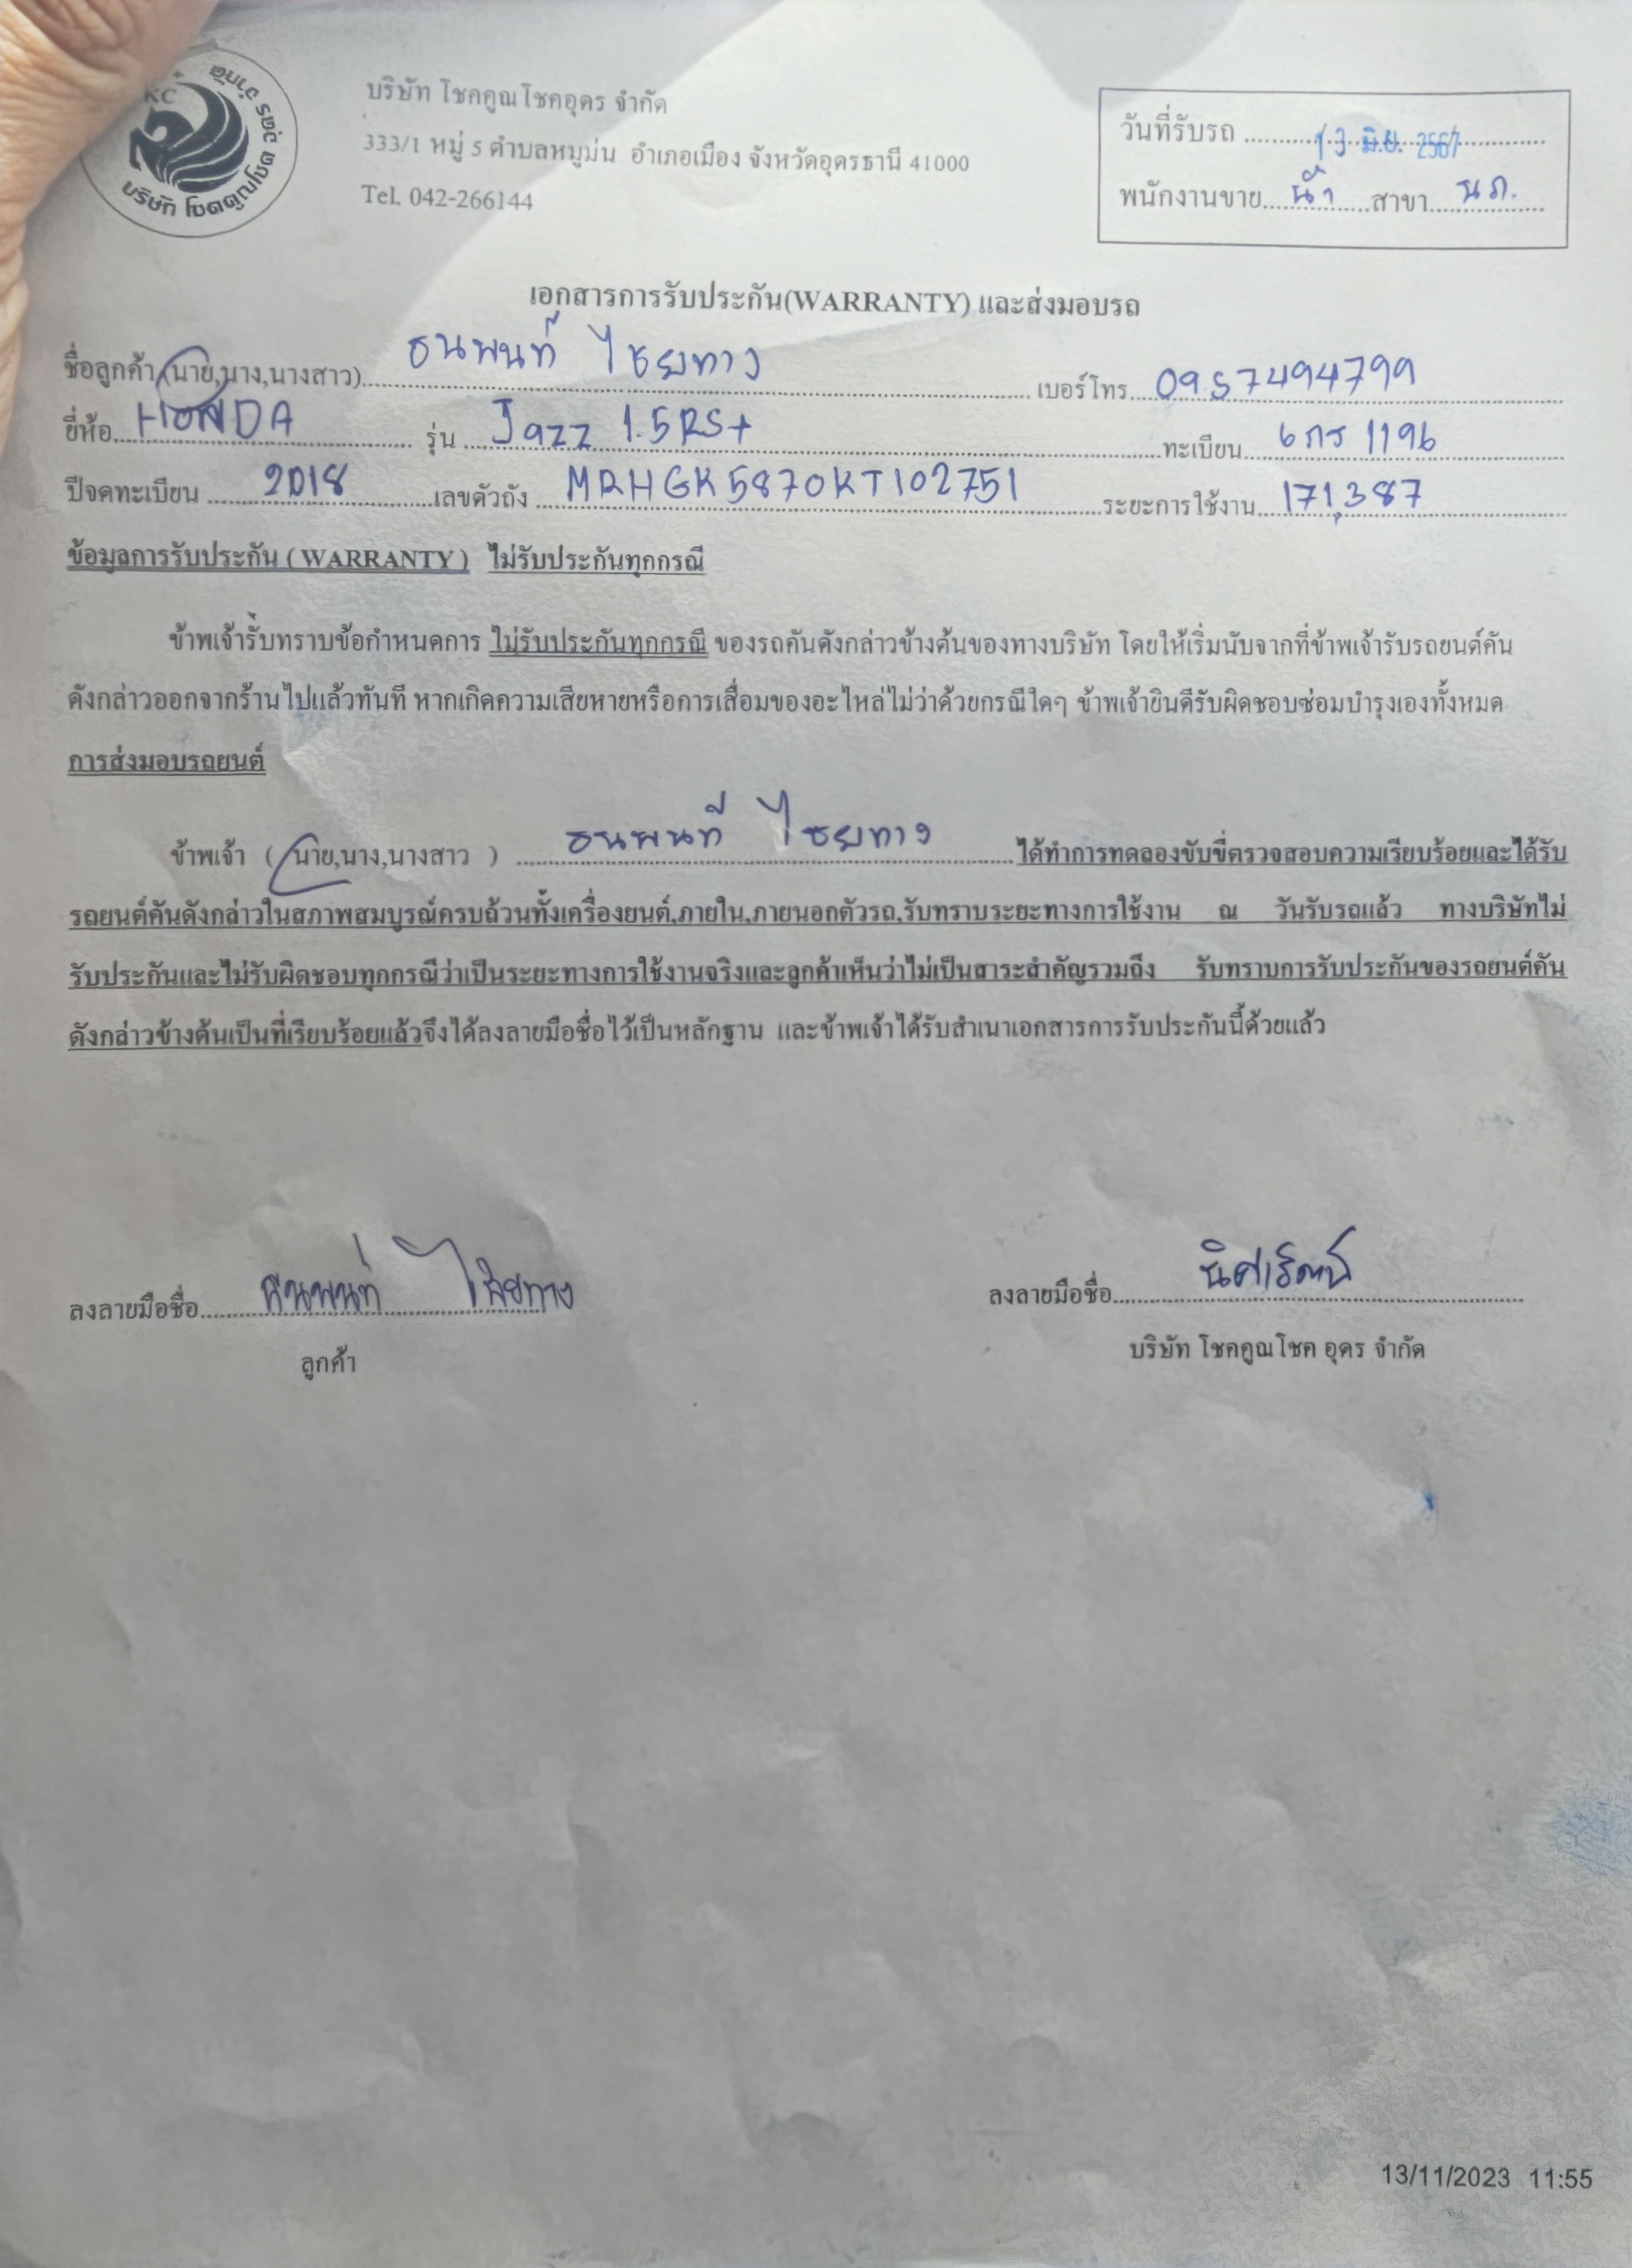 KC
บริษัท โชคคูณโชค อุดร จำกัด
บริษัท โชคคูณโชคอุดร จำกัด
333/1 หมู่ 5 ตำบลหมูม่น อำเภอเมือง จังหวัดอุดรธานี 41000
Tel. 042-266144
วันที่รับรถ 13 มิ.ย. 2567
พนักงานขาย น้ำ สาขา นภ.
เอกสารการรับประกัน(WARRANTY) และส่งมอบรถ
ชื่อลูกค้า (นาย,นาง,นางสาว) ธนพนท์ ไชยทาง เบอร์โทร 0957494799
ยี่ห้อ HONDA รุ่น Jazz 1.5RS+ ทะเบียน 6กร 1196
ปีจดทะเบียน 2018 เลขตัวถัง MRHGK5870KT102751 ระยะการใช้งาน 171,387
ข้อมูลการรับประกัน (WARRANTY) ไม่รับประกันทุกกรณี
ข้าพเจ้ารับทราบข้อกำหนดการ ไม่รับประกันทุกกรณี ของรถคันดังกล่าวข้างต้นของทางบริษัท โดยให้เริ่มนับจากที่ข้าพเจ้ารับรถยนต์คัน
ดังกล่าวออกจากร้านไปแล้วทันที หากเกิดความเสียหายหรือการเสื่อมของอะไหล่ไม่ว่าด้วยกรณีใดๆ ข้าพเจ้ายินดีรับผิดชอบซ่อมบำรุงเองทั้งหมด
การส่งมอบรถยนต์
ข้าพเจ้า ( นาย,นาง,นางสาว ) ธนพนท์ ไชยทาง ได้ทำการทดลองขับขี่ตรวจสอบความเรียบร้อยและได้รับ
รถยนต์คันดังกล่าวในสภาพสมบูรณ์ครบถ้วนทั้งเครื่องยนต์,ภายใน,ภายนอกตัวรถ,รับทราบระยะทางการใช้งาน ณ วันรับรถแล้ว ทางบริษัทไม่
รับประกันและไม่รับผิดชอบทุกกรณีว่าเป็นระยะทางการใช้งานจริงและลูกค้าเห็นว่าไม่เป็นสาระสำคัญรวมถึง รับทราบการรับประกันของรถยนต์คัน
ดังกล่าวข้างต้นเป็นที่เรียบร้อยแล้วจึงได้ลงลายมือชื่อไว้เป็นหลักฐาน และข้าพเจ้าได้รับสำเนาเอกสารการรับประกันนี้ด้วยแล้ว
ลงลายมือชื่อ ธนพนท์ ไชยทาง ลงลายมือชื่อ
ลูกค้า บริษัท โชคคูณโชค อุดร จำกัด
13/11/2023 11:55